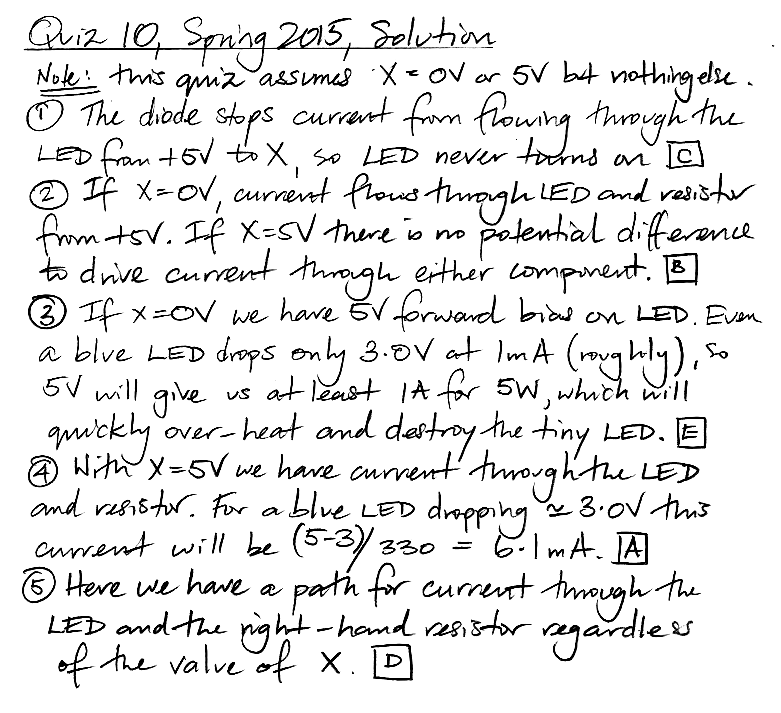 Quiz 10, Spring 2015, Solution
Note: this quiz assumes X = 0V or 5V but nothing else.
① The diode stops current from flowing through the
LED from +5V to X, so LED never turns on [C]
② If X=0V, current flows through LED and resistor
from +5V. If X=5V there is no potential difference
to drive current through either component. [B]
③ If X=0V we have 5V forward bias on LED. Even
a blue LED drops only 3.0V at 1mA (roughly), so
5V will give us at least 1A for 5W, which will
quickly over-heat and destroy the tiny LED. [E]
④ With X=5V we have current through the LED
and resistor. For a blue LED dropping ≃ 3.0V this
current will be (5-3)/330 = 6.1mA. [A]
⑤ Here we have a path for current through the
LED and the right-hand resistor regardless
of the value of X. [D]